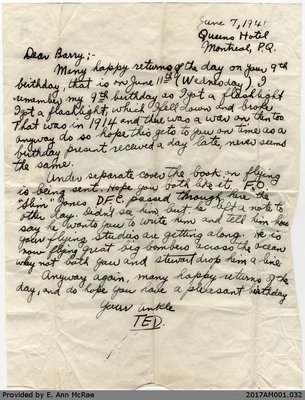 June 7, 1941
Queens Hotel
Montreal, P.Q.
Dear Barry;-
Many happy returns of the day on your 9th
birthday, that is on June 11th (Wednesday). I
remember my 9th birthday as I got a flashlight
I got a flashlight, which I fell down and broke
that was in 1914 and there was a war on then too
anyway do so hope this gets to you on time as a
birthday present received a day late, never seems
the same.
Under separate cover the book on flying
is being sent. Hope you both like it. F.O.
"Slim" Jones D.F.C. passed through here the
other day. Didn't see him but he left a note to
say he wants you to write him and tell him how
your flying studies are getting along. He is
now flying great big bombers across the ocean
why not both you and Stewart drop him a line
Anyway again, many happy returns of the
day, and do hope you have a pleasant birthday
Your unkle
TED.
Provided by E. Ann McRae
2017AM001.032